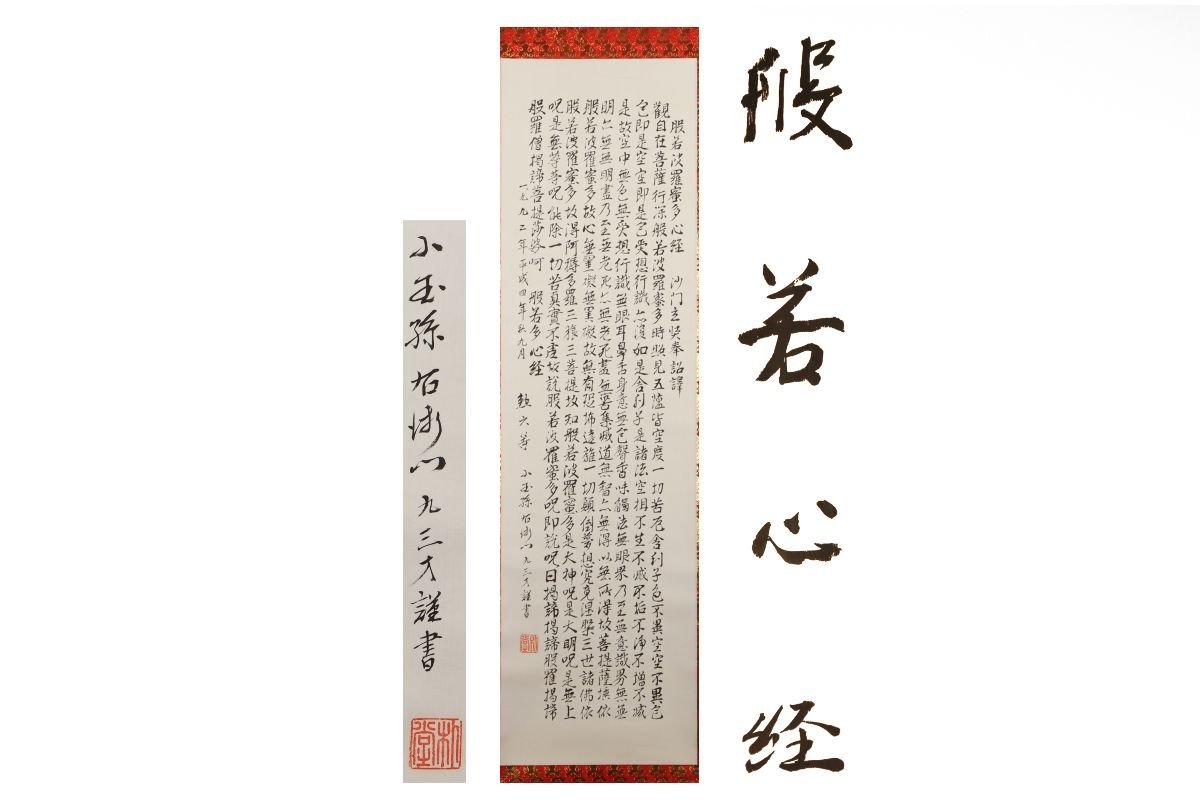 般若心経
般若波羅蜜多心経 沙門玄奘奉詔譯
觀自在菩薩行深般若波羅蜜多時照見五蘊皆空度一切苦厄舎利子色不異空空不異色
色即是空空即是色受想行識亦復如是舎利子是諸法空相不生不滅不垢不浄不増不減
是故空中無色無受想行識無眼耳鼻舌身意無色聲香味觸法無眼界乃至無意識界無無
明亦無無明盡乃至無老死亦無老死盡無苦集滅道無智亦無得以無所得故菩提薩埵依
般若波羅蜜多故心無罣礙無罣礙故無有恐怖遠離一切顛倒夢想究竟涅槃三世諸佛依
般若波羅蜜多故得阿耨多羅三藐三菩提故知般若波羅蜜多是大神呪是大明呪是無上
呪是無等等呪能除一切苦真實不虚故説般若波羅蜜多呪即説呪曰揭諦揭諦般羅揭諦
般羅僧揭諦菩提莎婆呵 般若多心経
一九九二年平成四年秋九月 勲六等 小玉孫右衛門 九三才謹書
小玉孫右衛門九三才謹書